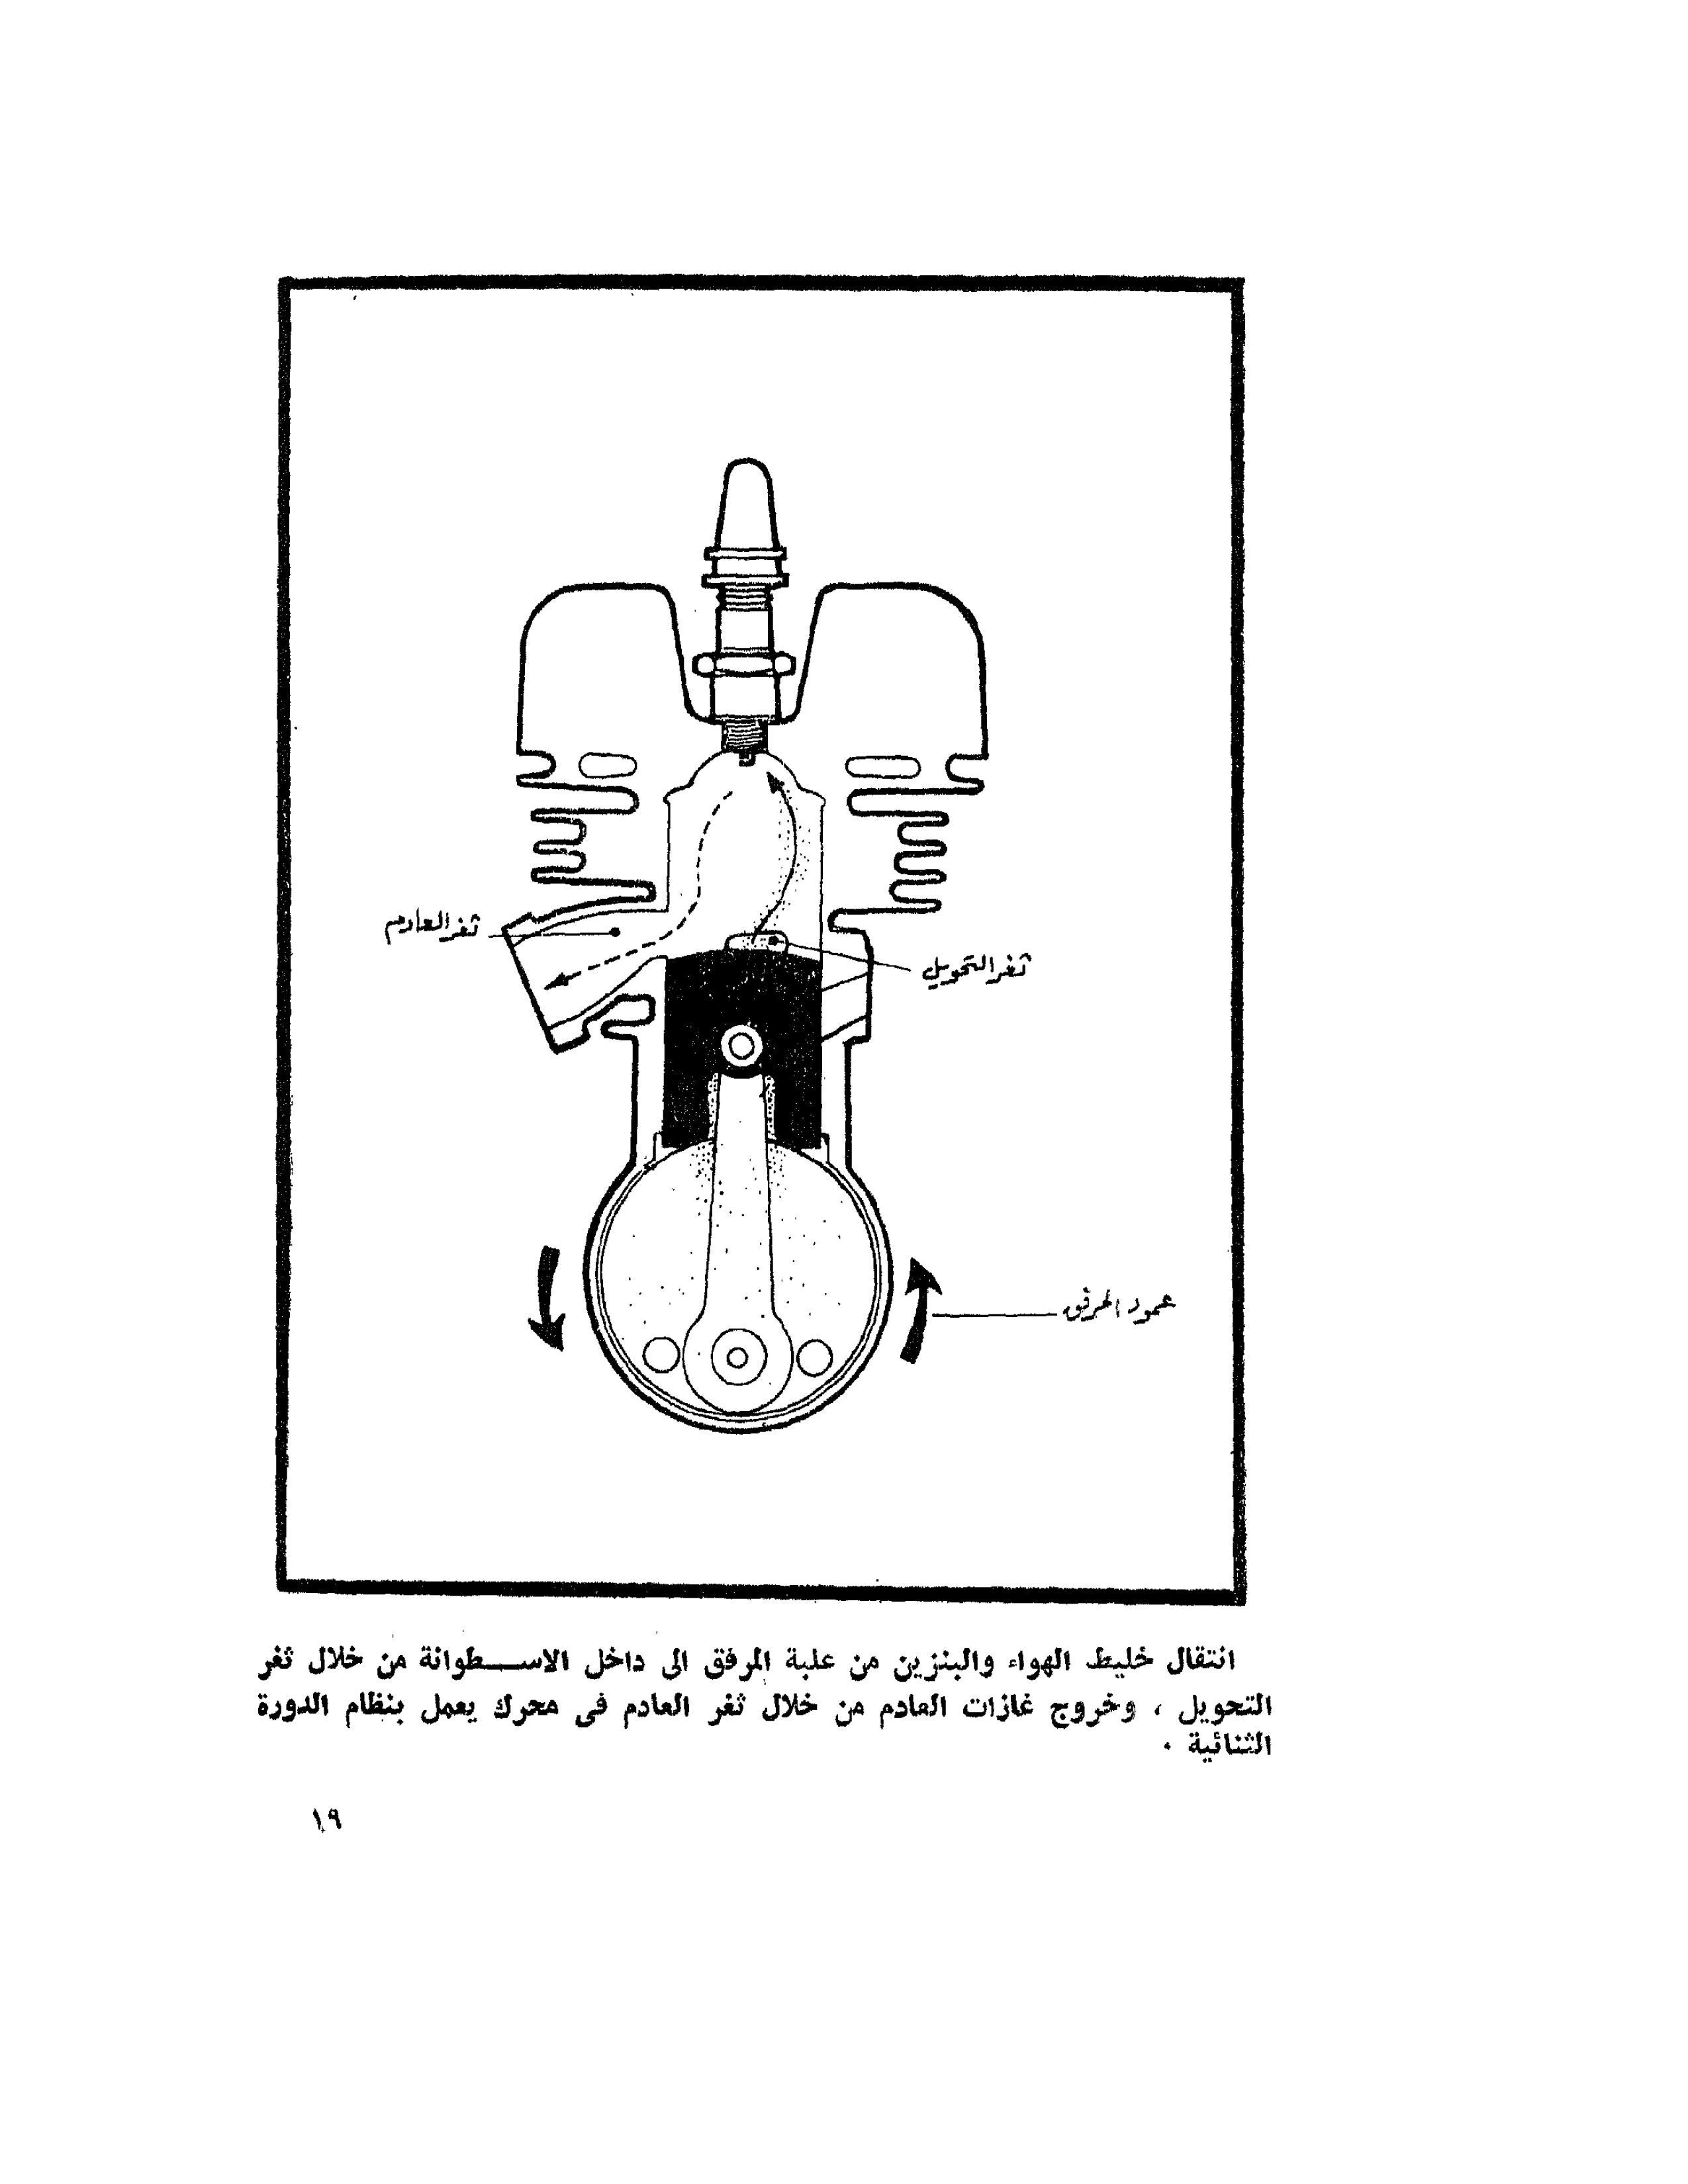 ثغر العادم
ثغر التحويل
عمود المرفق
انتقال خليط الهواء والبنزين من علبة المرفق الى داخل الاسـطوانة من خلال ثغر
التحويل ، وخروج غازات العادم من خلال ثغر العادم فى محرك يعمل بنظام الدورة
الثنائية ٠
١٩